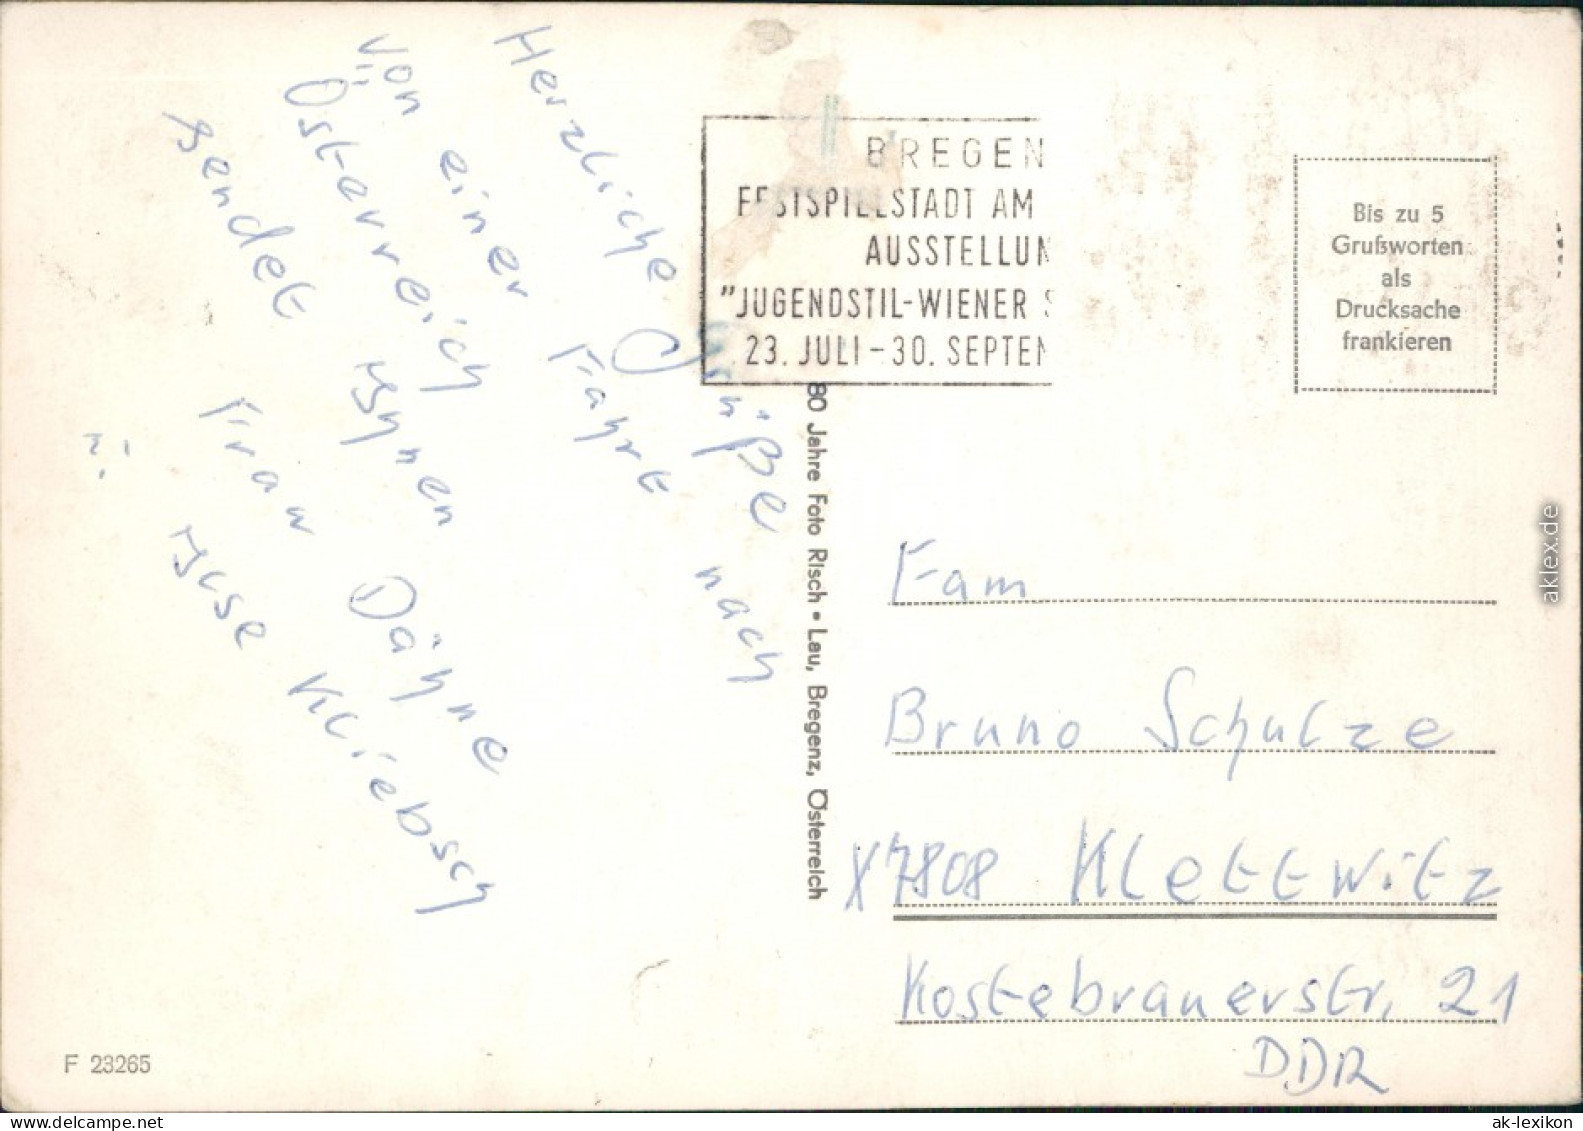 Herzliche Grüße
von einer Fahrt nach
Österreich
sendet Ihnen
Frau Dähne
Ilse Kliebsch
BREGEN
FESTSPIELSTADT AM
AUSSTELLUN
"JUGENDSTIL-WIENER S
23. JULI - 30. SEPTEM
Bis zu 5
Grußworten
als
Drucksache
frankieren
80 Jahre Foto Risch • Lau, Bregenz, Österreich
Fam
Bruno Schulze
X7808 Klettwitz
Kostebrauerstr. 21
DDR
F 23265
aklex.de
www.delcampe.net
ak-lexikon